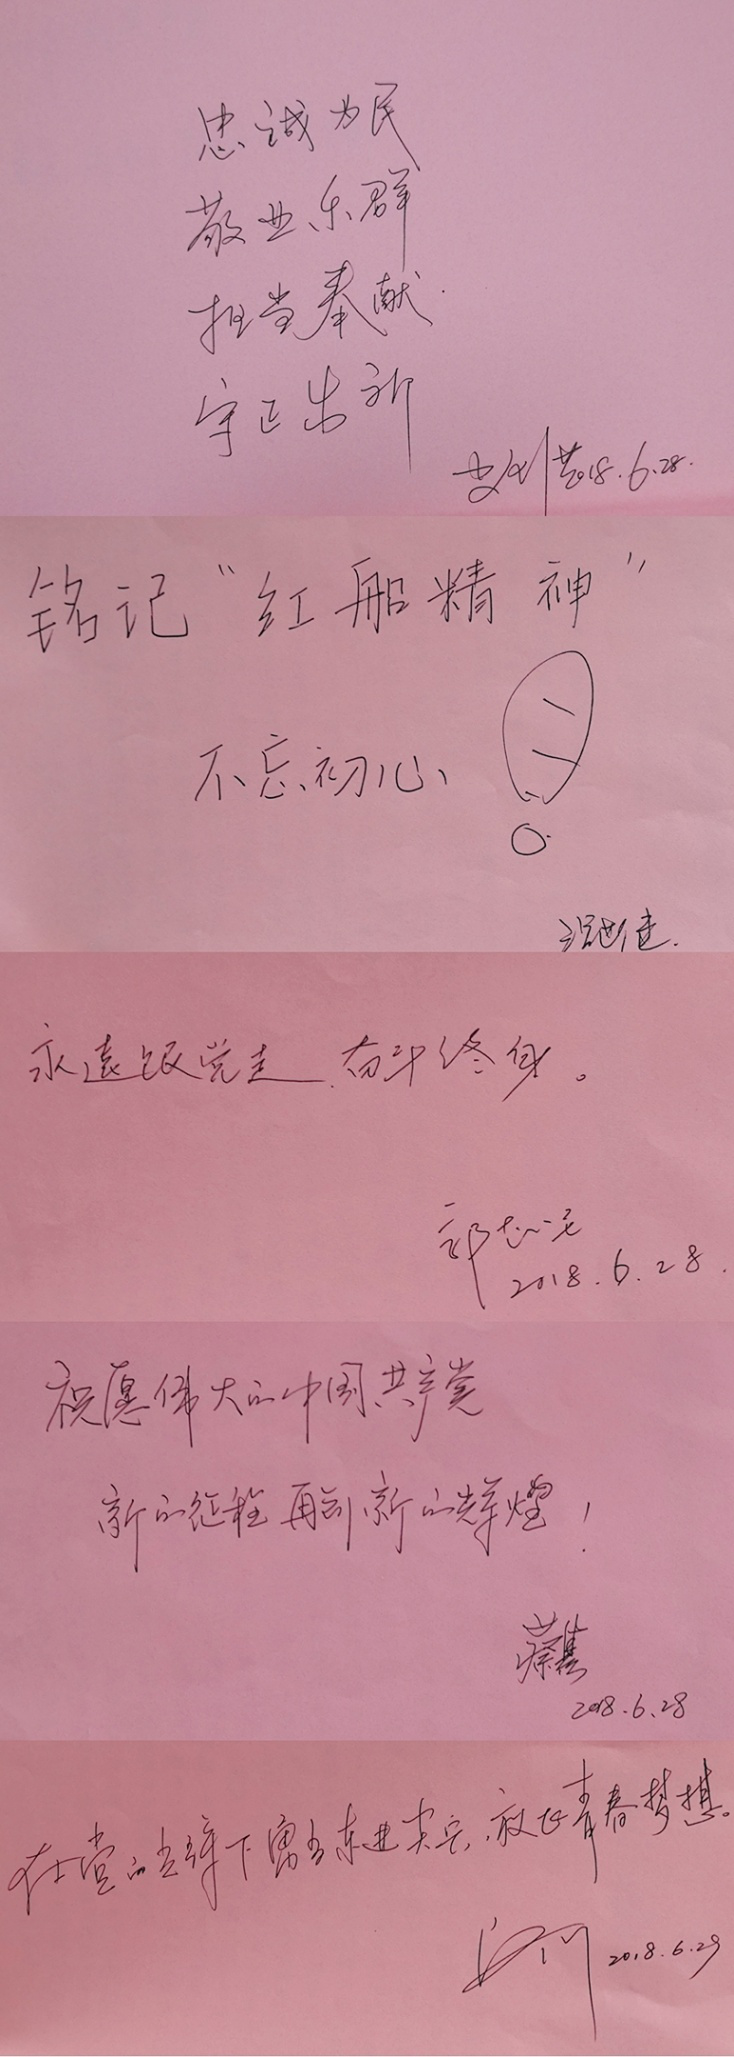 忠诚为民
敬业乐群
担当奉献
守正出新
2018.6.28.
铭记“红船精神”
不忘初心
永远跟党走 奋斗终身。
2018.6.28.
祝愿伟大的中国共产党
新的征程再创新的辉煌！
2018.6.28
在党的光辉下勇当东进尖兵,放飞青春梦想。
2018.6.29